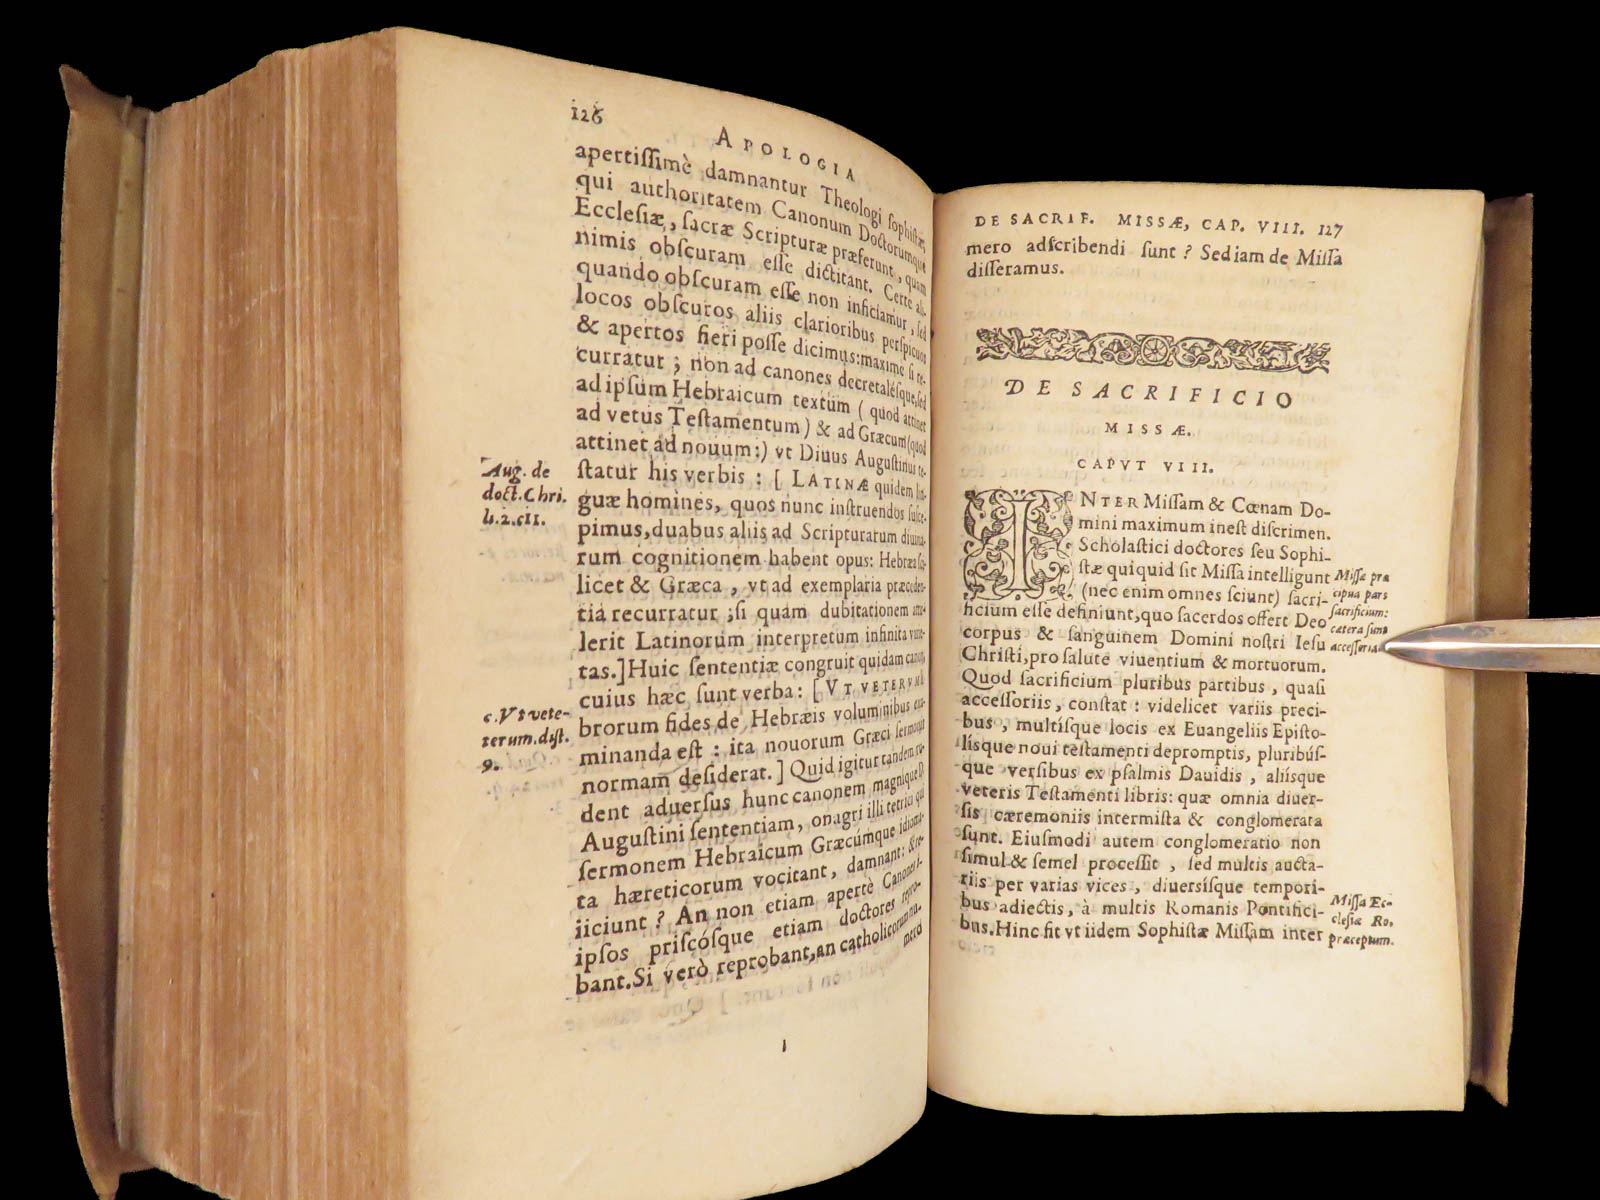 126
APOLOGIA
apertissimè damnantur Theologi sophistæ,
qui authoritatem Canonum Doctorumque
Ecclesiæ, sacræ Scripturæ præferunt, quam
nimis obscuram esse dictitant. Certe ali-
quando obscuram esse non inficiamur, sed
locos obscuros aliis clarioribus perspicuos
& apertos fieri posse dicimus: maxime si re-
curratur ; non ad canones decretalésque, sed
ad ipsum Hebraicum textum ( quod attinet
ad vetus Testamentum ) & ad Græcum (quod
attinet ad nouum:) vt Diuus Augustinus te-
statur his verbis : [ LATINÆ quidem lin-
guæ homines, quos nunc instruendos susce-
pimus, duabus aliis ad Scripturarum diuina-
rum cognitionem habent opus: Hebræa sci-
licet & Græca , vt ad exemplaria præceden-
tia recurratur ; si quam dubitationem attu-
lerit Latinorum interpretum infinita varie-
tas.] Huic sententiæ congruit quidam canon,
cuius hæc sunt verba: [ VT VETERVM li-
brorum fides de Hebræis voluminibus exa-
minanda est : ita nouorum Græci sermonis
normam desiderat. ] Quid igitur tandem ri-
dent aduersus hunc canonem magnique D.
Augustini sententiam, onagri illi tetrici qui
sermonem Hebraicum Græcúmque idioma-
ta hæreticorum vocitant, damnant: & re-
iiciunt ? An non etiam apertè Canones i-
ipsos priscósque etiam doctores repro-
bant. Si verò reprobant, an catholicorum nu-
mero
Aug. de
doct. Chri.
li.2.c11.
c. Vt vete-
terum. dist.
9.
DE SACRIF. MISSÆ, CAP. VIII. 127
mero adscribendi sunt ? Sed iam de Missa
disseramus.
DE SACRIFICIO
MISSÆ.
CAPVT VIII.
INTER Missam & Cœnam Do-
mini maximum inest discrimen.
Scholastici doctores seu Sophi-
stæ quiquid sit Missa intelligunt
(nec enim omnes sciunt) sacri-
ficium esse definiunt, quo sacerdos offert Deo
corpus & sanguinem Domini nostri Iesu
Christi, pro salute viuentium & mortuorum.
Quod sacrificium pluribus partibus , quasi
accessoriis , constat : videlicet variis preci-
bus , multisque locis ex Euangeliis Episto-
lísque noui testamenti depromptis, pluribús-
que versibus ex psalmis Dauidis , aliisque
veteris Testamenti libris: quæ omnia diuer-
sis cæremoniis intermista & conglomerata
sunt. Eiusmodi autem conglomeratio non
simul & semel processit , sed multis aucta-
riis per varias vices , diuersísque tempori-
bus adiectis, à multis Romanis Pontifici-
bus. Hinc fit vt iidem Sophistæ Missam inter
Missæ præ
cipua pars
sacrificium:
cætera sunt
accessoria.
Missa Ec-
clesiæ Ro.
præceptum.